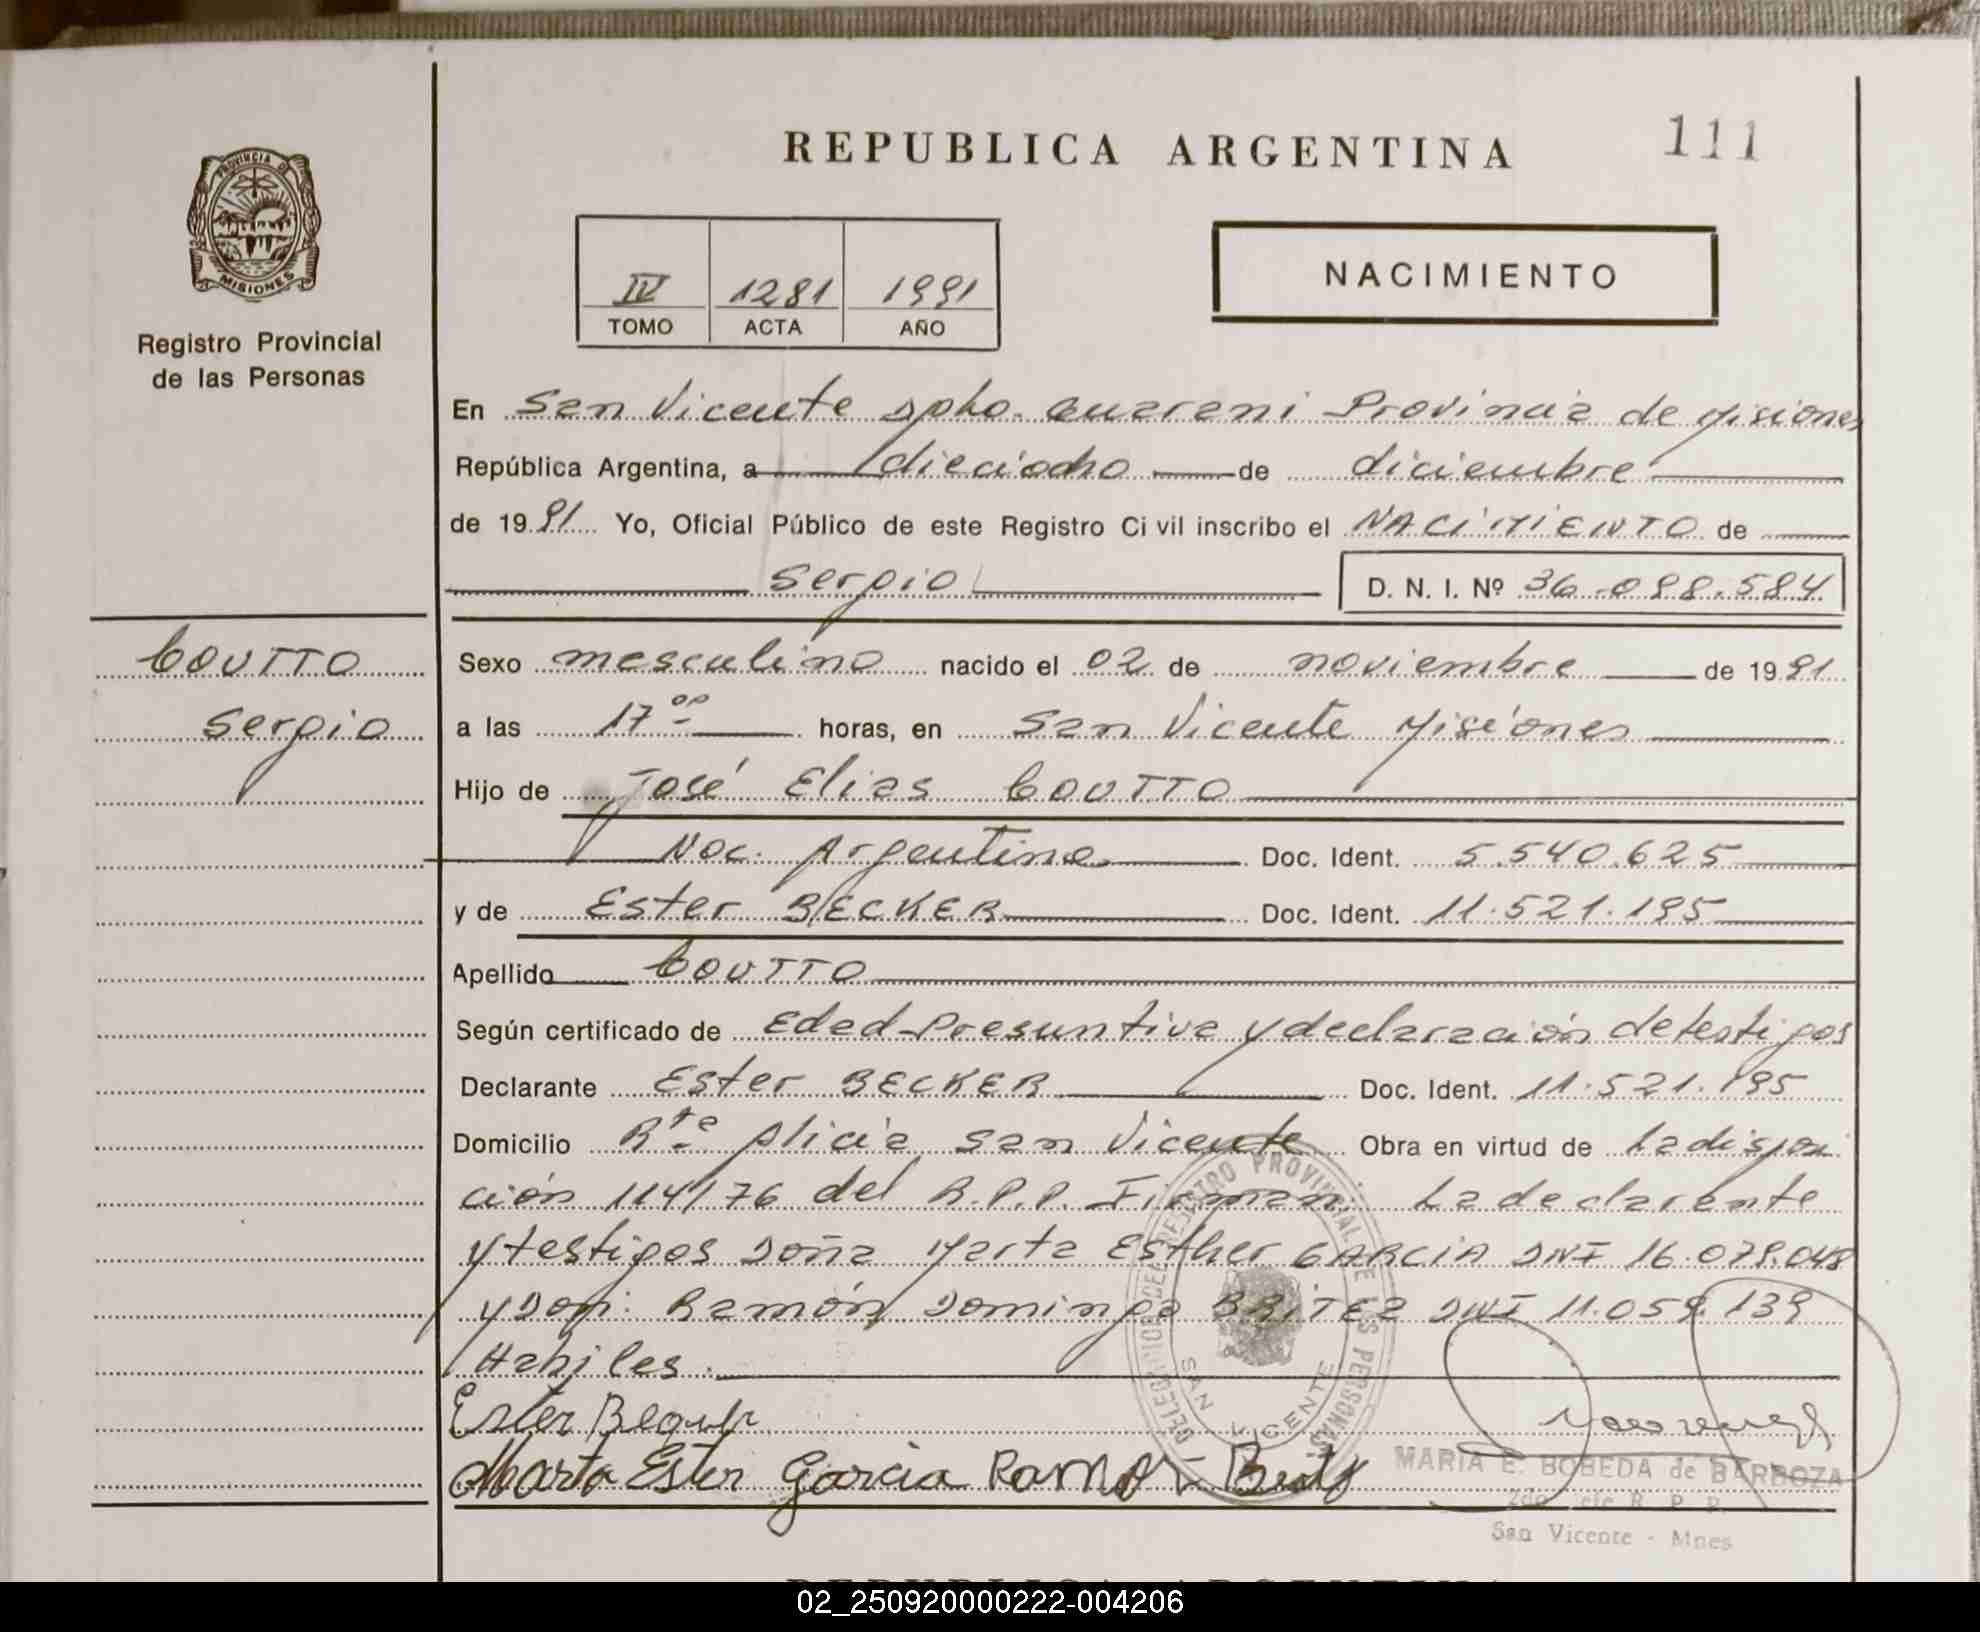 REPUBLICA ARGENTINA
111
PROVINCIA DE
MISIONES
Registro Provincial
de las Personas
IV 1281 1991
TOMO ACTA AÑO
NACIMIENTO
En San Vicente Dpto. Guarani Provincia de Misiones
República Argentina, a dieciocho de diciembre
de 1991 Yo, Oficial Público de este Registro Civil inscribo el NACIMIENTO de
Sergio D. N. I. Nº 36.098.584
COUTTO
Sergio
Sexo masculino nacido el 02 de noviembre de 1991
a las 17 00 horas, en San Vicente Misiones
Hijo de José Elias COUTTO
Nac. Argentina Doc. Ident. 5.540.625
y de Ester BECKER Doc. Ident. 11.521.195
Apellido COUTTO
Según certificado de Edad Presuntiva y declaración de testigos
Declarante Ester BECKER Doc. Ident. 11.521.195
Domicilio Rta Alicia San Vicente Obra en virtud de La disposi
ción 114/76 del R.P.P. Firman: La declarante
y testigos Doña Marta Esther GARCIA DNI 16.079.048
y Don: Ramón Domingo BRITEZ DNI 11.059.139
Habiles.
Ester
Marta Ester Garcia Ramon
DELEGACION DEL REGISTRO PROVINCIAL DE LAS PERSONAS
SAN VICENTE
MARIA E. BOBEDA de BARBOZA
2do Jefe R. P. P.
San Vicente - Mnes
REPUBLICA ARGENTINA
02_250920000222-004206